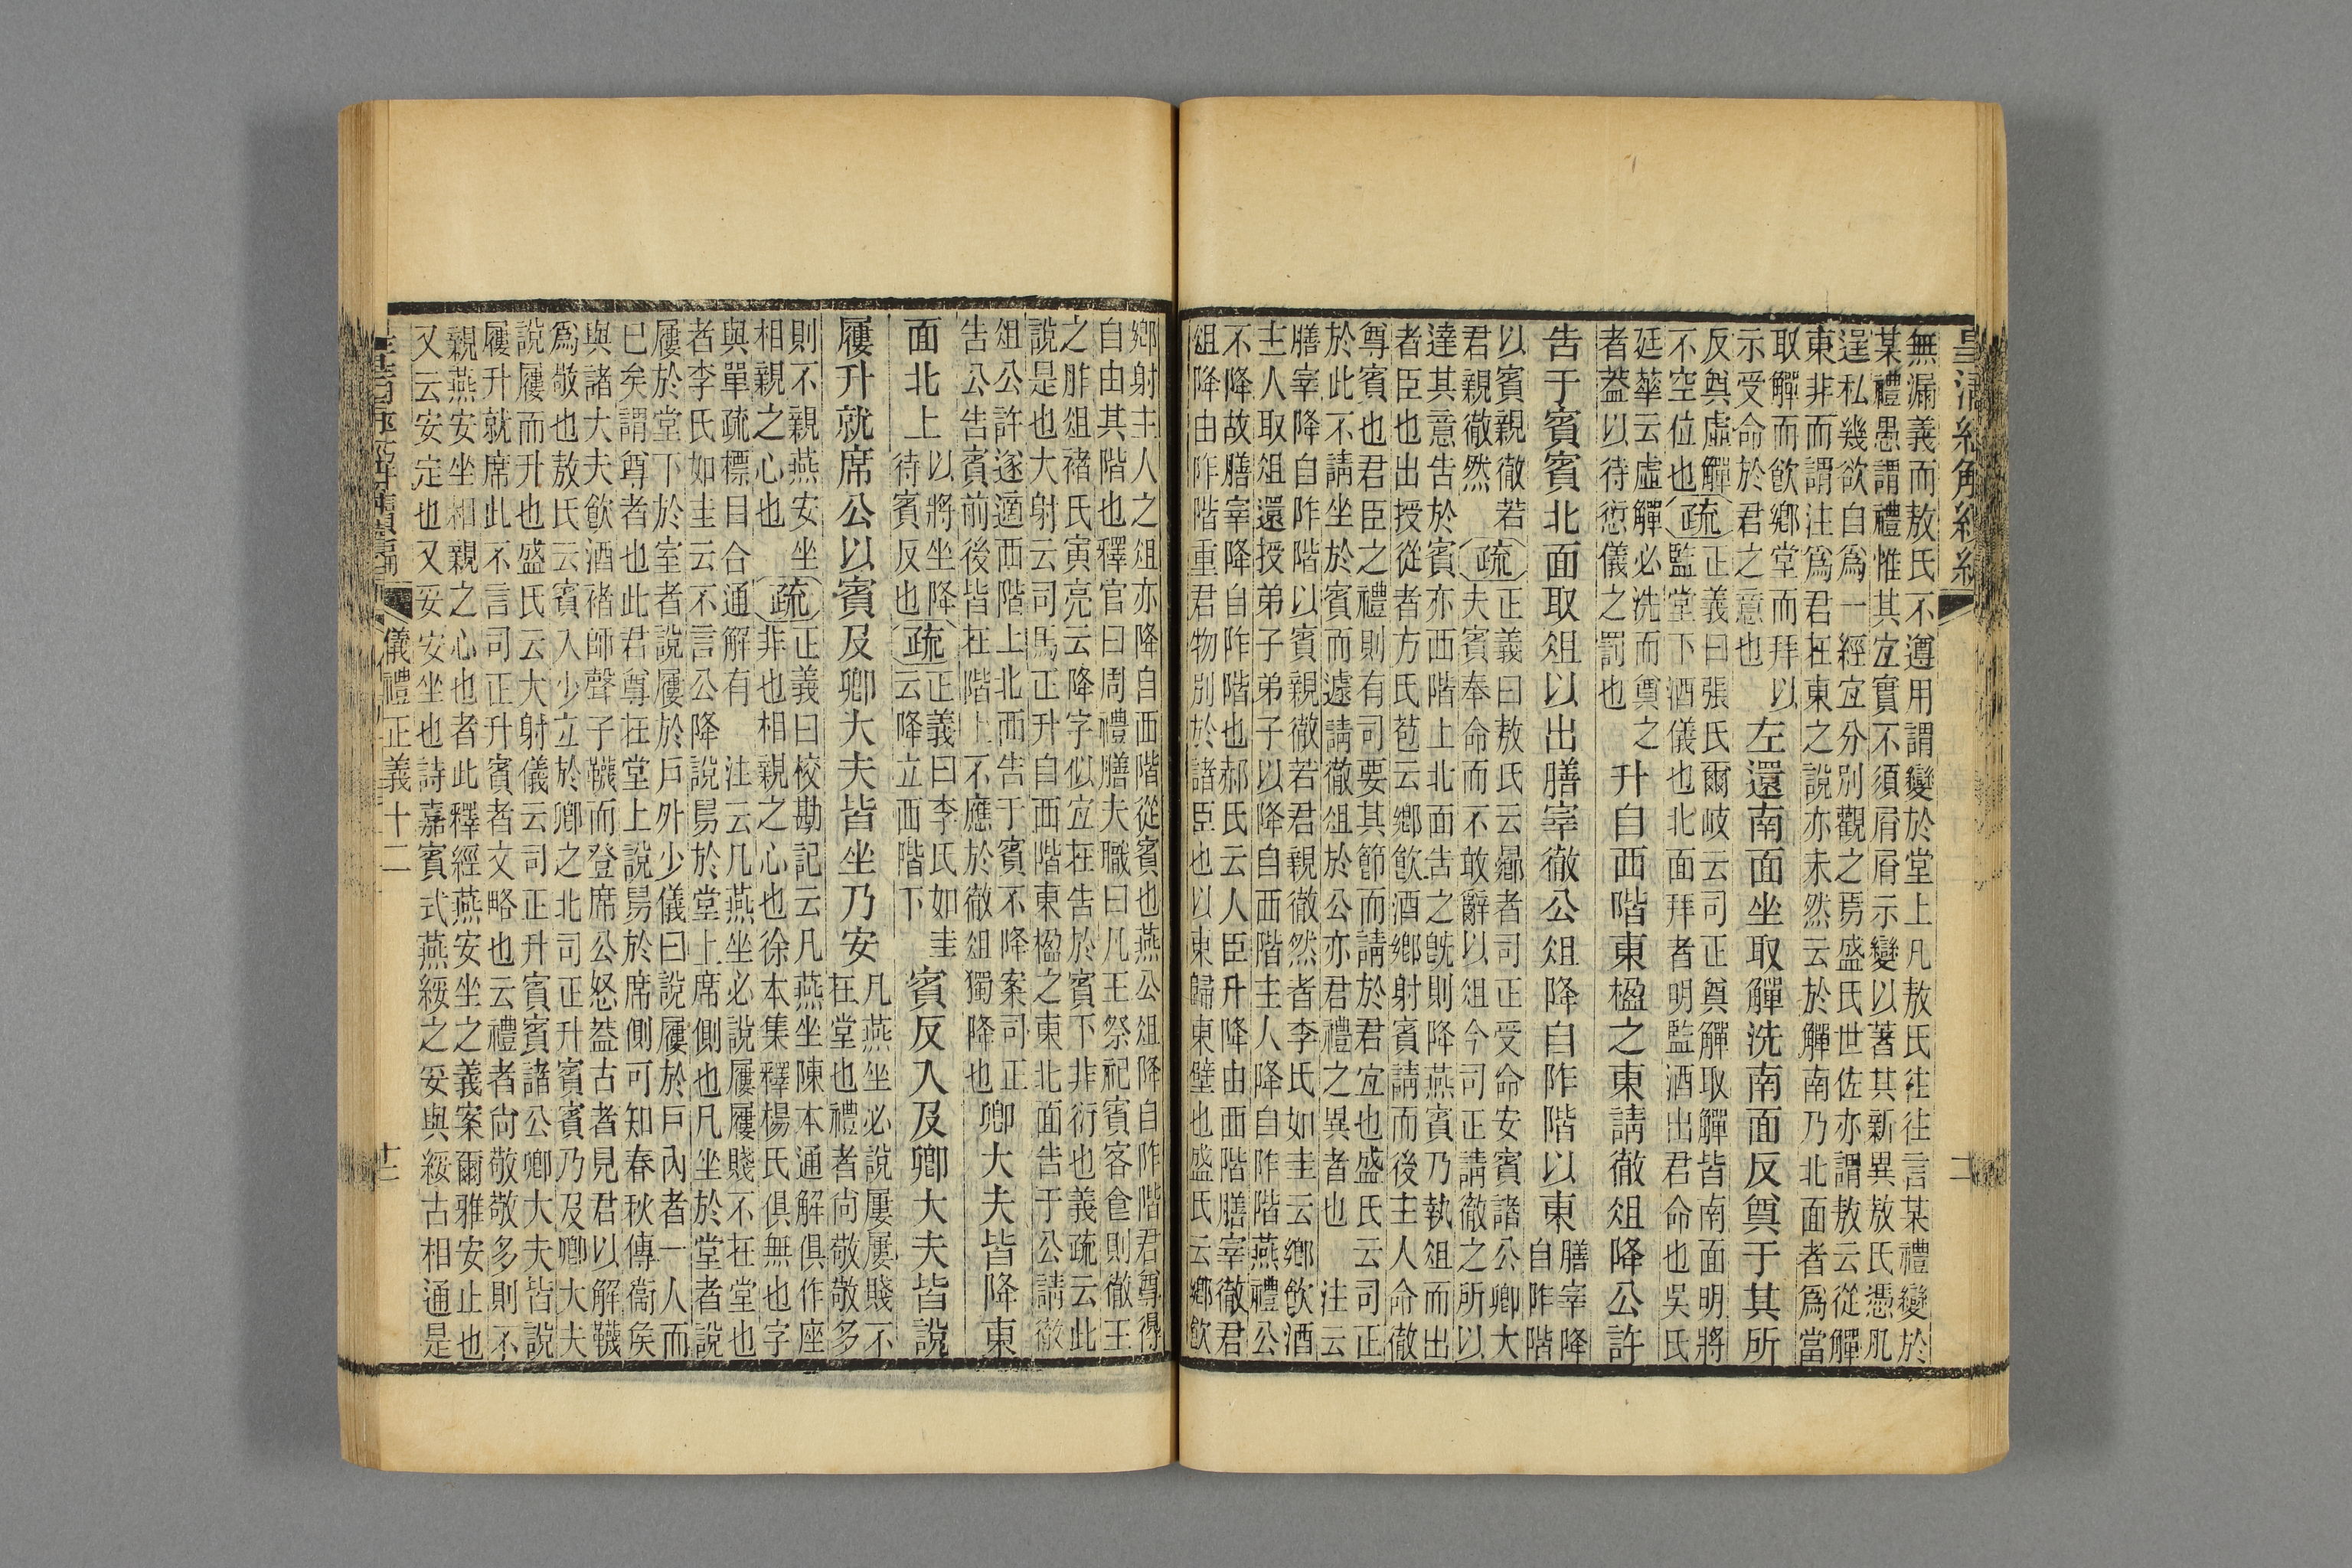 皇清經解續編
無漏義而敖氏不遵用謂變於堂上凡敖氏往往言某禮變於
某禮愚謂禮惟其宜實不須屑屑示變以著其新異敖氏憑肊
逞私幾欲自爲一經宜分別觀之焉盛氏世佐亦謂敖云從觶
東非而謂注爲君在東之說亦未然云於觶南乃北面者爲當
取觶而飮鄕堂而拜以
示受命於君之意也
左還南面坐取觶洗南面反奠于其所
反奠虛觶
不空位也
疏
正義曰張氏爾岐云司正奠觶取觶皆南面明將
監堂下酒儀也北面拜者明監酒出君命也吳氏
廷華云虛觶必洗而奠之
者蓋以待愆儀之罰也
升自西階東楹之東請徹俎降公許
告于賓賓北面取俎以出膳宰徹公俎降自阼階以東
膳宰降
自阼階
以賓親徹若
君親徹然
疏
正義曰敖氏云曏者司正受命安賓諸公卿大
夫賓奉命而不敢辭以俎今司正請徹之所以
達其意告於賓亦西階上北面告之旣則降燕賓乃執俎而出
者臣也出授從者方氏苞云鄕飮酒鄕射賓請而後主人命徹
尊賓也君臣之禮則有司要其節而請於君宜也盛氏云司正
於此不請坐於賓而遽請徹俎於公亦君禮之異者也　注云
膳宰降自阼階以賓親徹若君親徹然者李氏如圭云鄕飮酒
主人取俎還授弟子弟子以降自西階主人降自阼階燕禮公
不降故膳宰降自阼階也郝氏云人臣升降由西階膳宰徹君
俎降由阼階重君物別於諸臣也以東歸東壁也盛氏云鄕飮
鄕射主人之俎亦降自西階從賓也燕公俎降自阼階君尊得
自由其階也釋官曰周禮膳夫職曰凡王祭祀賓客食則徹王
之胙俎褚氏寅亮云降字似宜在告於賓下非衍也義疏云此
說是也大射云司馬正升自西階東楹之東北面告于公請徹
俎公許遂適西階上北面告于賓不降案司正
告公告賓前後皆在階上不應於徹俎獨降也
卿大夫皆降東
面北上
以將坐降
待賓反也
疏
正義曰李氏如圭
云降立西階下
賓反入及卿大夫皆說
屨升就席公以賓及卿大夫皆坐乃安
凡燕坐必說屨屨賤不
在堂也禮者尙敬敬多
則不親燕安坐
相親之心也
疏
正義曰校勘記云凡燕坐陳本通解俱作座
非也相親之心也徐本集釋楊氏俱無也字
與單疏標目合通解有　注云凡燕坐必說屨屨賤不在堂也
者李氏如圭云不言公降說舄於堂上席側也凡坐於堂者說
屨於堂下於室者說屨於戶外少儀曰說屨於戶內者一人而
已矣謂尊者也此君尊在堂上說舄於席側可知春秋傳衞矦
與諸大夫飮酒褚師聲子韤而登席公怒蓋古者見君以解韤
爲敬也敖氏云賓入少立於卿之北司正升賓賓乃及卿大夫
說屨而升也盛氏云大射儀云司正升賓賓諸公卿大夫皆說
屨升就席此不言司正升賓者文略也云禮者尙敬敬多則不
親燕安坐相親之心也者此釋經燕安坐之義案爾雅安止也
又云安定也又妥安坐也詩嘉賓式燕綏之妥與綏古相通是
儀禮正義十二